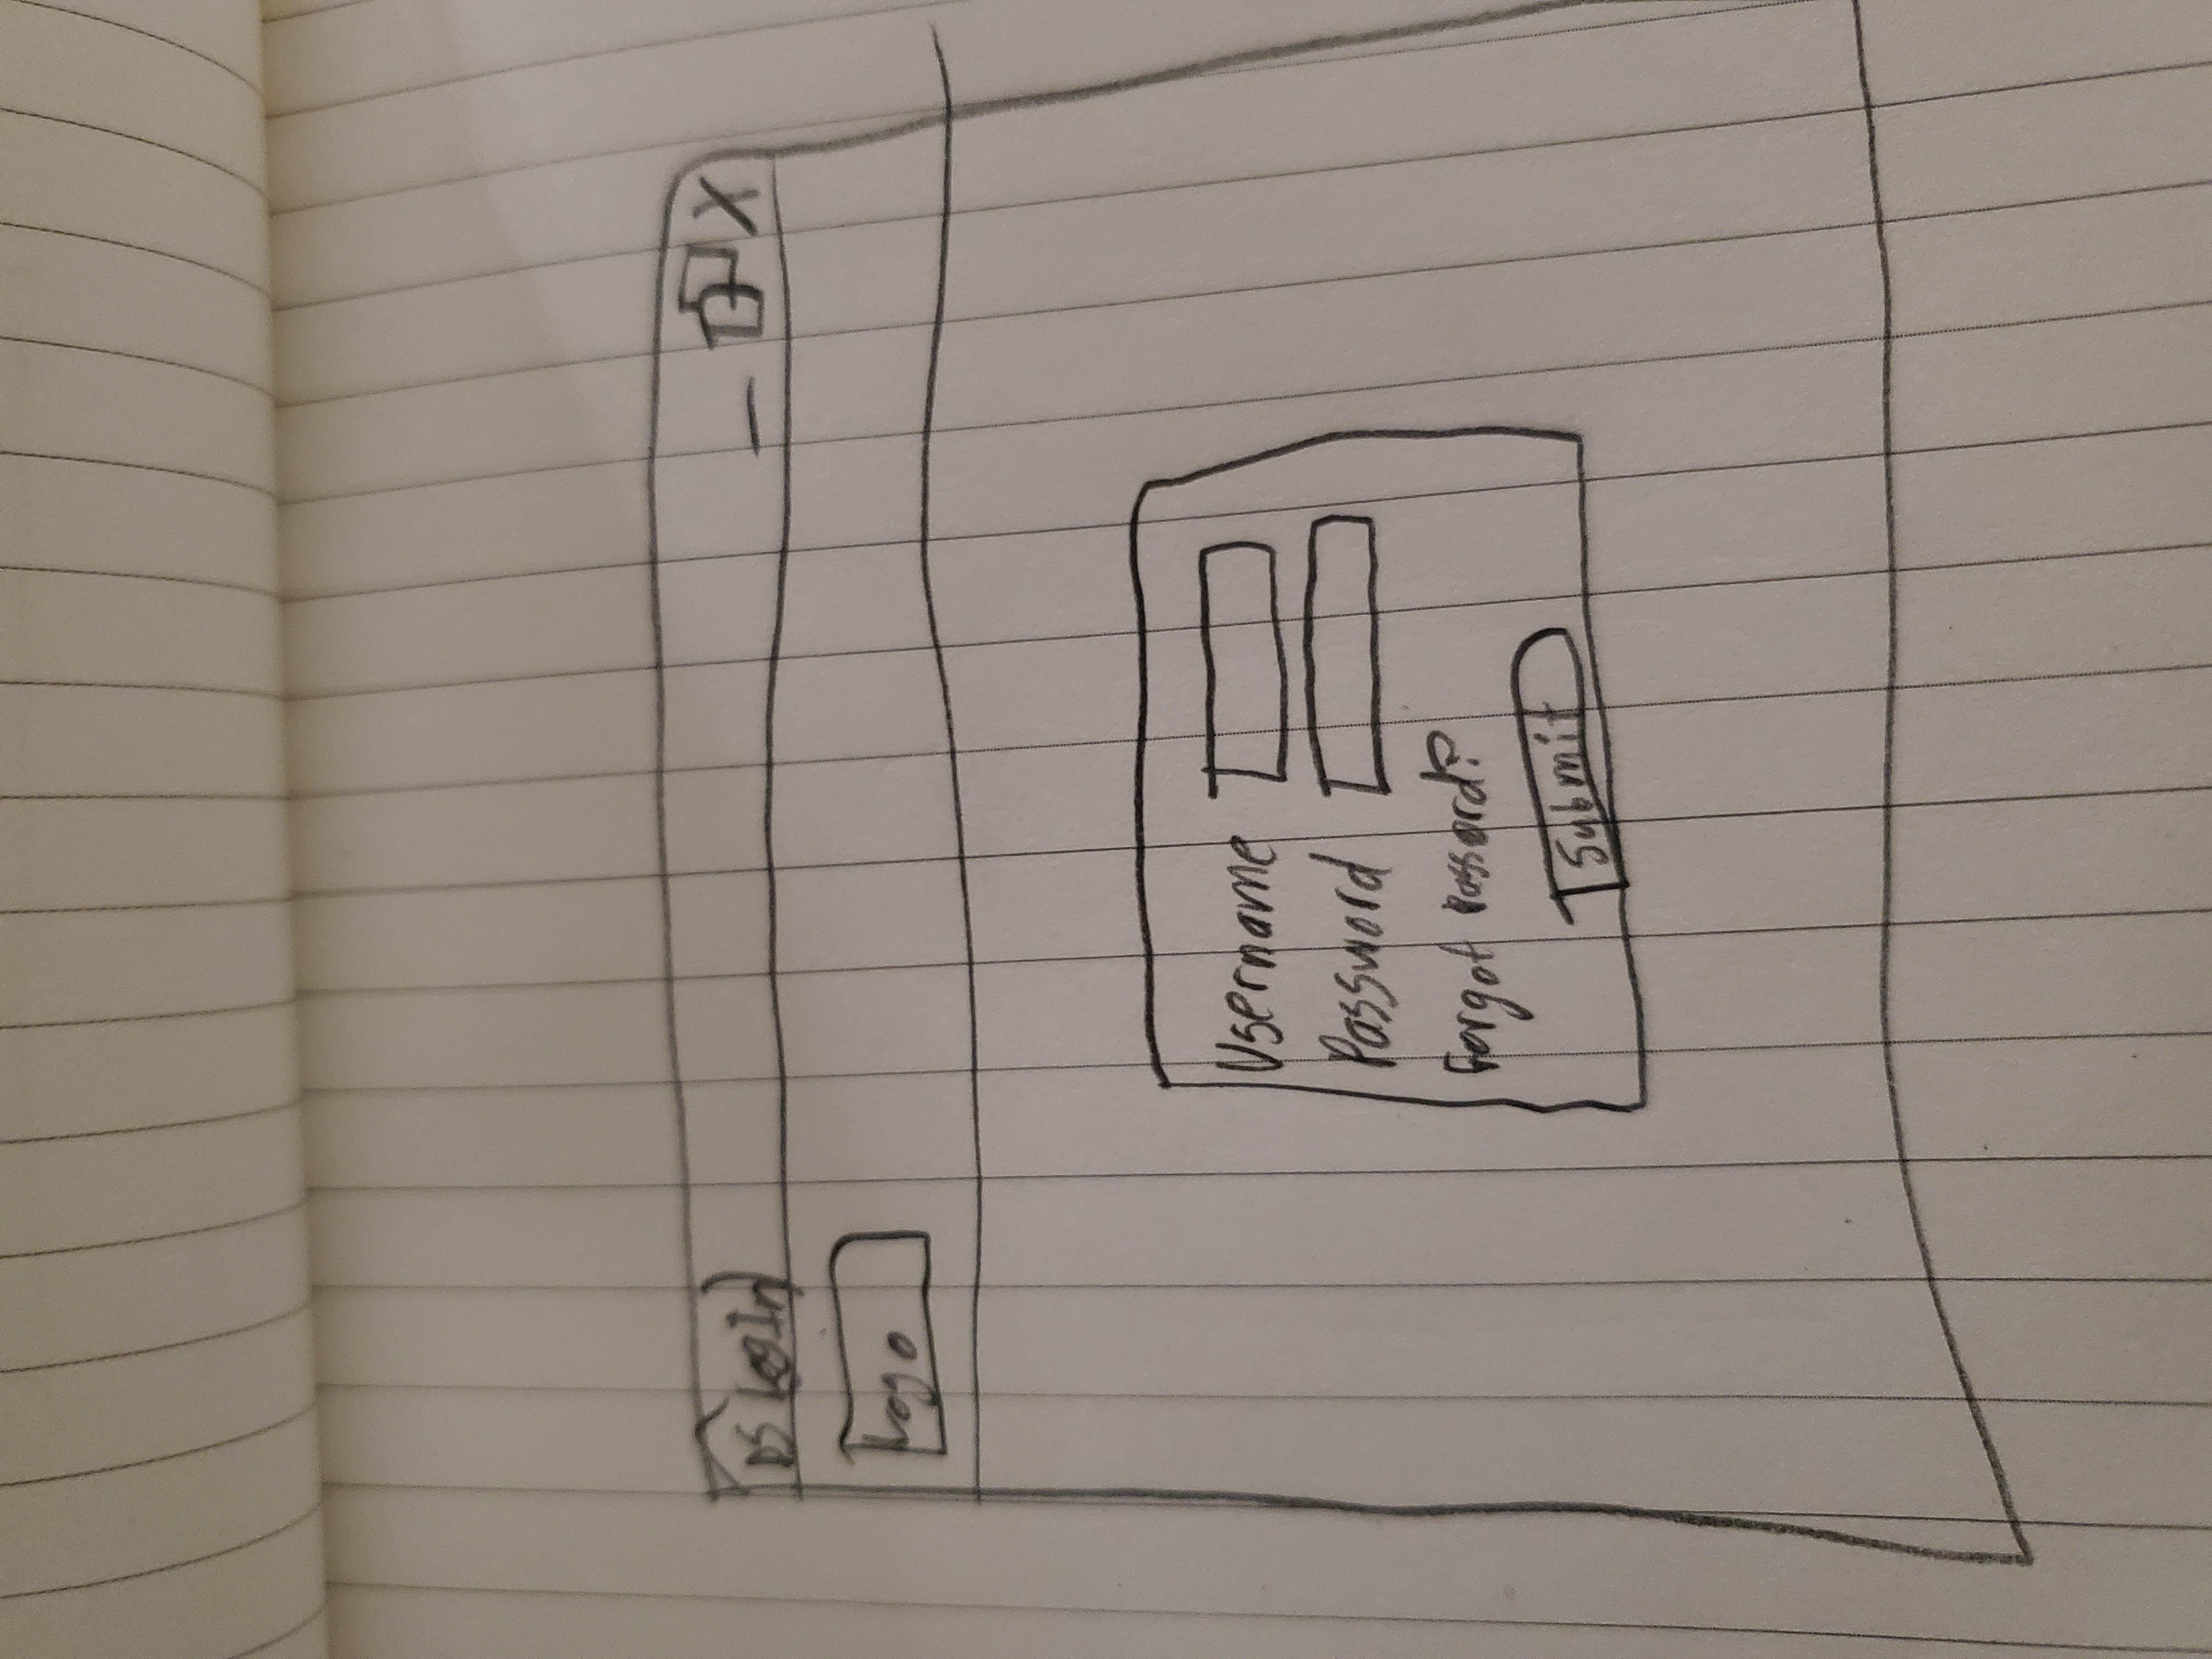 DS LogIn
Logo
Username
Password
Forgot Passord?
Submit